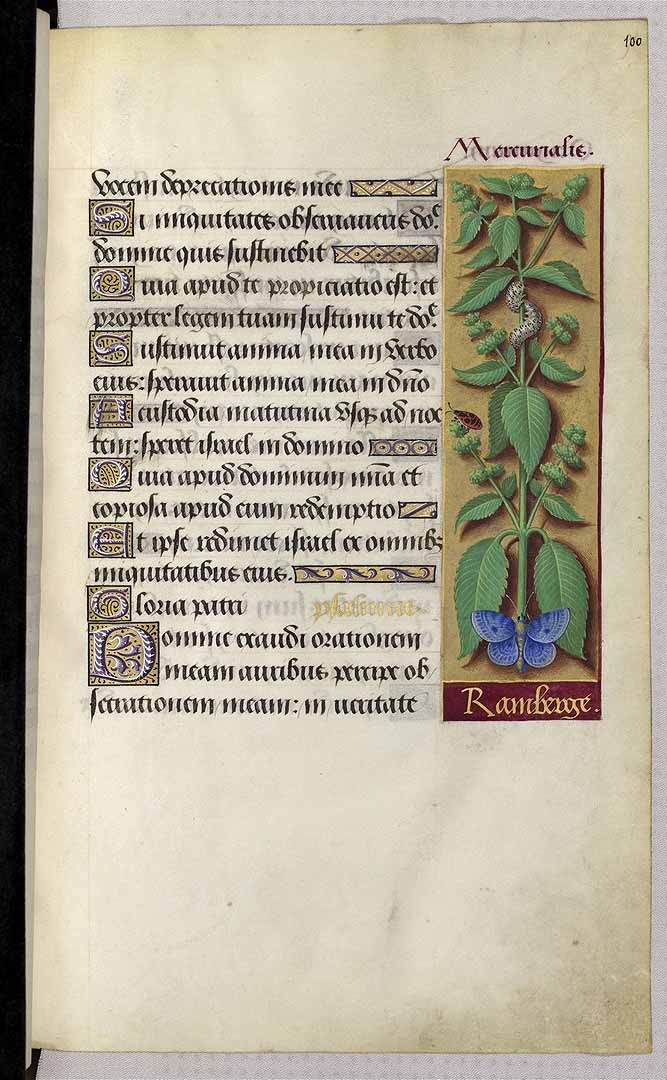 100
Mercurialis.
Vocem deprecationis mee
Si iniquitates observaveris do͡e
domine quis sustinebit
Quia apud te propiciatio est: et
propter legem tuam sustinui te do͡e
Sustinuit anima mea in verbo
eius: speravit anima mea in dn̄o
A custodia matutina vsqꝫ ad noc
tem: speret israel in domino
Quia apud dominum mīa et
copiosa apud eum redemptio
Et ipse redimet israel ex omnibꝫ
iniquitatibus eius.
Gloria patri psalmus
Domine exaudi orationem
meam auribus percipe ob
secrationem meam: in veritate
Ramberge.